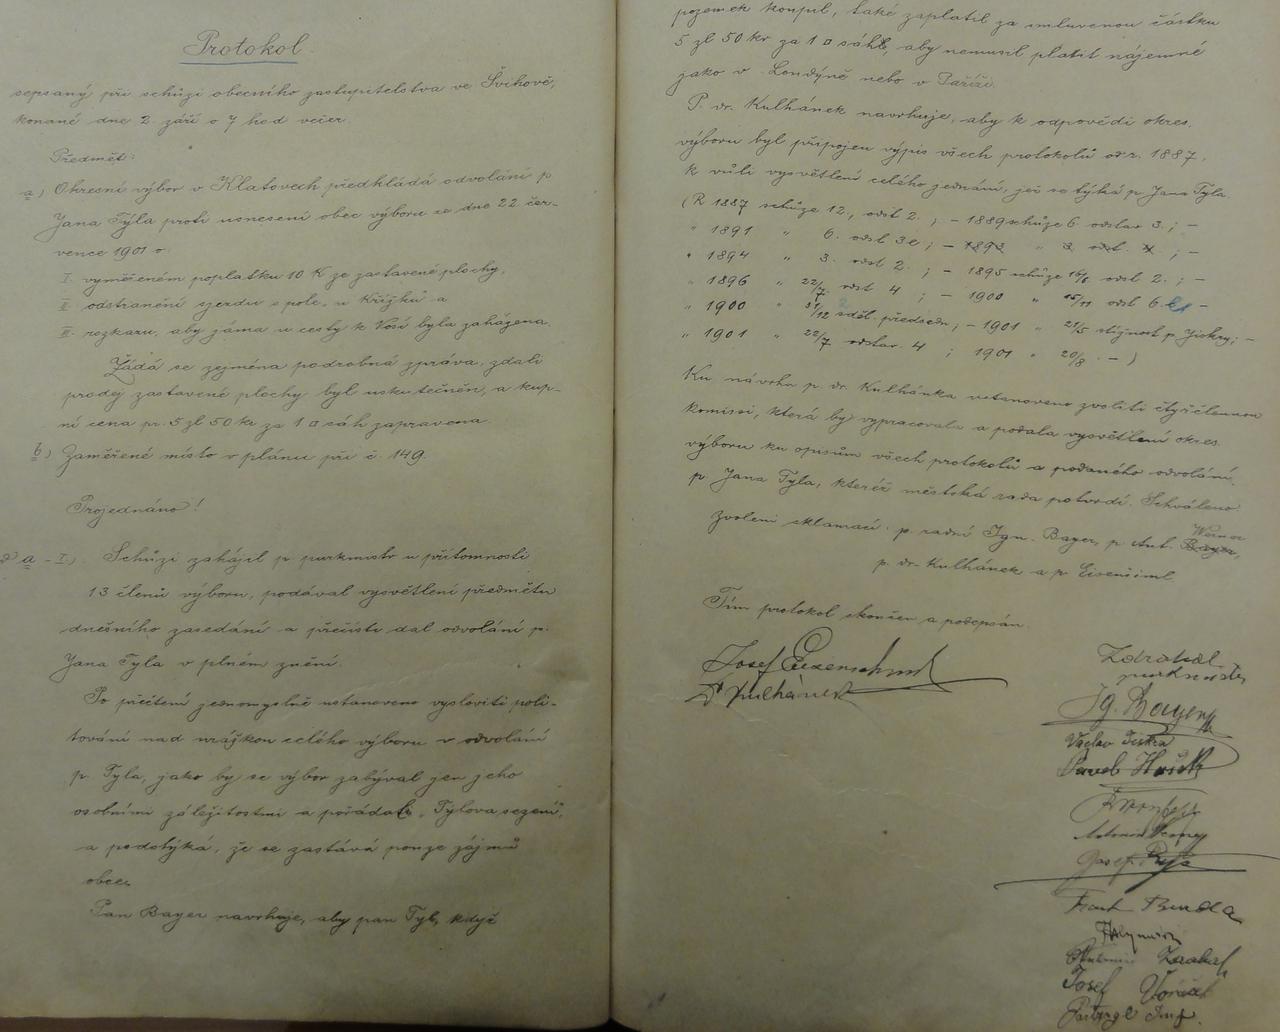 Protokol
sepsaný při schůzi obecního zastupitelstva ve Švihově,
konané dne 2. září o 7 hod večer.
Předmět:
a) Okresní výbor v Klatovech předkládá odvolání p
Jana Týla proti usnesení obec výboru ze dne 22 čer-
vence 1901 o
I. vyměřeném poplatku 10 K ze zastavené plochy,
II. odstranění vjezdu s pole u Křížků a
III. rozkazu, aby jáma u cesty k Vosí byla zaházena.
Žádá se zejména podrobná zpráva, zdali
prodej zastavené plochy byl uskutečněn, a kup-
ní cena pr. 5 zl 50 kr za 1 □ sáh zapravena.
b) Zaměřené místo v plánu při č. 149.
Projednáno!
a - I.) Schůzi zahájil p purkmistr u přítomnosti
13 členů výboru, podával vysvětlení předmětu
dnešního zasedání a přečísti dal odvolání p.
Jana Tyla v plném znění.
Po přečtení jednomyslně ustanoveno vysloviti poli-
tování nad urážkou celého výboru v odvolání
p. Tyla, jako by se výbor zabýval jen jeho
osobními záležitostmi a pořádal „Tylova sezení",
a podotýká, že se zastává pouze zájmů
obce.
Pan Bayer navrhuje, aby pan Tyl, když
pozemek koupil, také zaplatil za smluvenou částku
5 zl 50 kr za 1 □ sáh, aby nemusil platit nájemné
jako v Londýně nebo v Paříži.
P. dr. Kulhánek navrhuje, aby k odpovědi okres.
výboru byl připojen výpis všech protokolů od r. 1887,
k vůli vysvětlení celého jednání, jež se týká p. Jana Tyla.
(R 1887 schůze 12., odst 2. ; - 1889 schůze 6 odstav 3. ; -
" 1891 " 6. odst 3 ; - 1893 " 3. odst. ; -
" 1894 " 3. odst 2. ; - 1895 schůze 16/6 odst 2. ; -
" 1896 " 22/7 odst 4 ; - 1900 " 15/11 odst 6. -
" 1900 " 31/12 sděl. předsedn ; - 1901 " 21/5 stížnost p. Jiskry ; -
" 1901 " 22/7 odstav. 4 ; 1901 " 20/8. - )
Ku návrhu p. dr. Kulhánka ustanoveno zvoliti čtyřčlennou
komissi, která by vypracovala a podala vysvětlení okres.
výboru ku opisům všech protokolů a podaného odvolání
p. Jana Tyla, kteréž městská rada potvrdí. Schváleno
Zvoleni aklamací: p. radní Ign. Bayer, p Ant. Bayer, Werner
p. dr. Kulhánek a p Eisenšiml
Tím protokol skončen a podepsán.
Josef Eisenschiml
Dr Kulhánek
Zdrahal
purkmistr
Ig. Bayer
Václav Jiskra
Pavel
Antonín
Josef
Frant Burda
Antonín Zdrahal
Josef Voráč